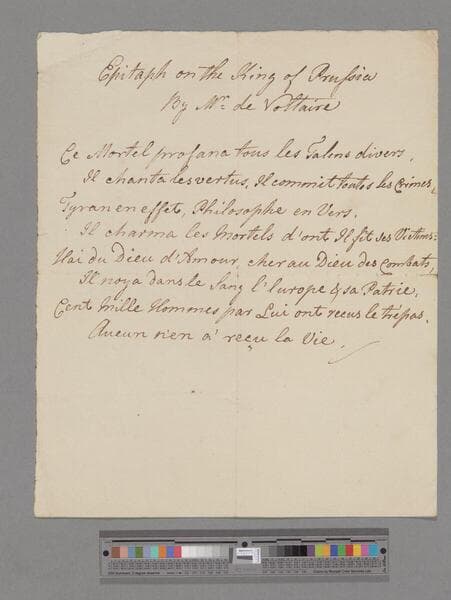 Epitaph on the King of Prussia
By Mr. de Voltaire
Ce Mortel profana tous les Talens divers,
Il chanta les vertus, Il commit toutes les Crimes,
Tyran en effet, Philosophe en Vers.
Il charma les Mortels d'ont Il fit ses Victims:
Hai du Dieu d'Amour, cher au Dieu des Combats,
Il noya dans le Sang l'Europe & sa Patrie,
Cent Mille Hommes par Lui ont recus le trepas,
Aucun n'en a' reçu la Vie.